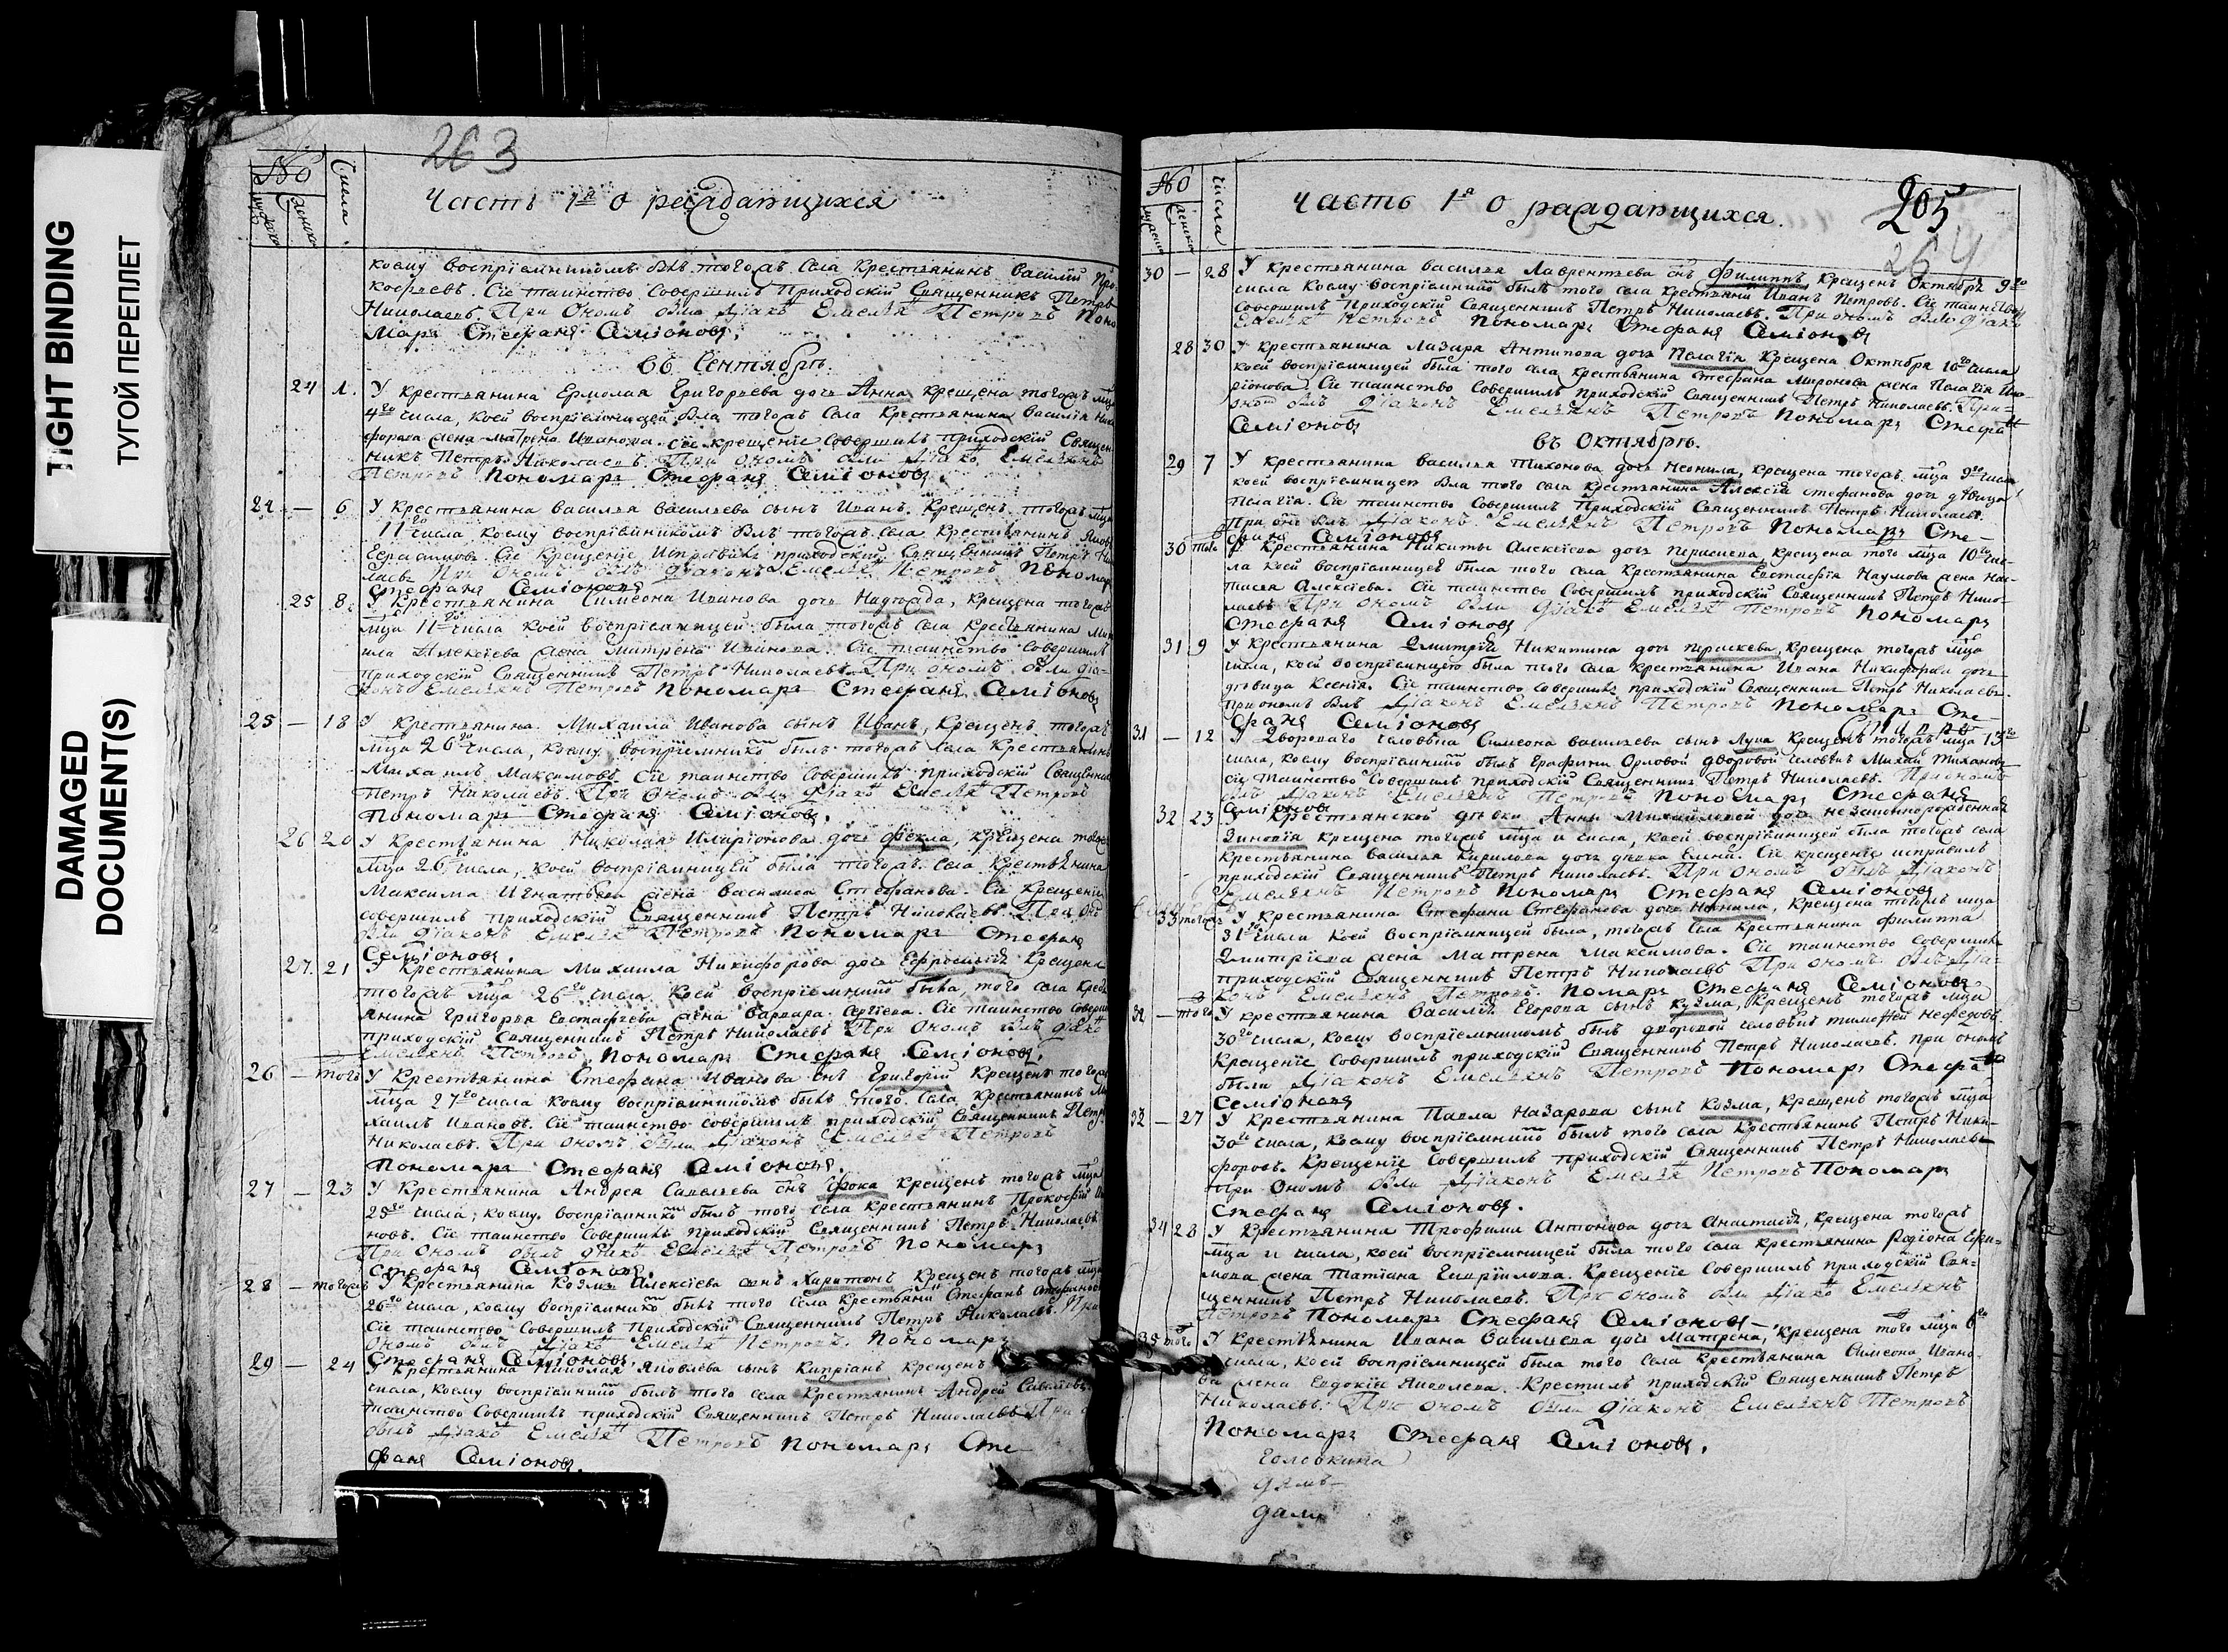 TIGHT BINDING
ТУГОЙ ПЕРЕПЛЕТ
DAMAGED
DOCUMENT(S)
263
№
Числа
Часть 1я о раждающихся
коему воспріемникомъ былъ тогожъ села крестьянинъ Василій Про
кофьевъ. Сіе таинство совершилъ Приходскій Священникъ Петръ
Николаевъ. При ономъ были Діако Емелья Петровъ Поно
марь Стефанъ Семіоновъ.
въ Сентябрѣ.
24 1. У крестьянина Ермолая Григорьева дочь Анна крещена тогожъ мца
4го числа, коей воспріемницей была тогожъ села крестьянина Василія Ники
форова жена Матрена Иванова. Сіе крещеніе совершилъ приходскій Священ
никъ Петръ Николаевъ. При ономъ были Діако Емельянъ
Петровъ Пономарь Стефанъ Семіоновъ.
24 — 6 У крестьянина Василья Васильева сынъ Иванъ. Крещенъ тогожъ мца
11го числа, коему воспріемникомъ былъ тогожъ села крестьянинъ Яковъ
Герасимовъ. Сіе крещеніе исправилъ приходскій Священникъ Петръ Ни
лаевъ При ономъ былъ Діаконъ Емелья Петровъ Пономарь
Стефанъ Семіоновъ
25 8. У крестьянина Симеона Иванова дочь Надежда, крещена тогожъ
мца 11го числа коей воспріемницей была тогожъ села крестьянина Ми
ила Алексіева жена Матрена Иванова. Сіе таинство совершилъ
приходскій Священникъ Петръ Николаевъ При ономъ были діа
конъ Емельянъ Петровъ Пономарь Стефанъ Семіоновъ
25 — 18 У крестьянина Михаила Иванова сынъ Иванъ, крещенъ тогожъ
мца 26го числа, коему воспріемнико былъ тогожъ села крестьянинъ
Михаилъ Максимовъ Сіе таинство совершилъ приходскій Священник
Петръ Николаевъ При ономъ были Діако Емелья Петровъ
Пономарь Стефанъ Семіоновъ.
26 20 У крестьянина Николая Иларіонова дочь Фекла, крещена тогожъ
мца 26го числа, коей воспріемницей была тогожъ села крестьянина
Максима Игнатьева жена Василиса Стефанова. Сіе крещеніе
совершилъ приходскій Священникъ Петръ Николаевъ. При оно
были діаконъ Емелья Петровъ Пономарь Стефанъ
Семіоновъ.
27. 21 У крестьянина Михаила Никифорова дочь Ефросинія крещена
тогожъ мца 26го числа. Коей воспріемницо была, того села крест
янина Григорья Евстафьева жена Варвара Сергіева. Сіе таинство соверши
приходскій священникъ Петръ Николаевъ При ономъ былъ діако
Емельянъ Петровъ Пономарь Стефанъ Семіоновъ.
26 — того У крестьянина Стефана Иванова снъ Григорій крещенъ тогожъ
мца 27го числа коему воспріемникомъ былъ того села крестьянинъ Ми
хаилъ Ивановъ. Сіе таинство совершилъ приходскій Священникъ Петръ
Николаевъ. При ономъ были Діаконъ Емелья Петровъ
Пономарь Стефанъ Семіоновъ.
27 — 23 У крестьянина Андрея Савельева снъ Фока крещенъ тогожъ мца
25го числа, коему воспріемнико былъ того села крестьянинъ Прокофій
новъ. Сіе таинство совершилъ приходскій Священникъ Петръ Николаевъ
При ономъ былъ діако Емелья Петровъ Пономарь
Стефанъ Семіоновъ.
28 — тогожъ У крестьянина Козмы Алексіева снъ Харитонъ крещенъ тогожъ мца
26го числа, коему воспріемнико былъ того села крестьяни Стефанъ
Сіе таинство совершилъ приходскій Священникъ Петръ Николаевъ. При
ономъ былъ Діако Емелья Петровъ. Пономарь
Стефанъ Семіоновъ.
29 — 24 У крестьянина Николая Яковлева сынъ Кипріанъ крещенъ
числа, коему воспріемнико былъ того села крестьянинъ Андрей Савельевъ
таинство совершилъ приходскій Священникъ Петръ Николаевъ При
былъ Діако Емелья Петровъ Пономарь Сте
фанъ Семіоновъ.
№
числа
Часть 1я о раждающихся.
205
264
30 — 28 У крестьянина Василья Лаврентьева снъ Филиппъ крещенъ Октября 9го
числа коему воспріемнико былъ того села крестьяни Иванъ Петровъ. Сіе таинство
совершилъ Приходскій Священникъ Петръ Николаевъ. При ономъ были діако
Емелья Петровъ Пономарь Стефанъ Семіоновъ
28 30 У крестьянина Лазаря Антипова дочь Пелагія крещена Октября 10го числа
коей воспріемницей была того села крестьянина Стефана Миронова жена Пелагія Ила
ріонова. Сіе таинство совершилъ приходскій Священникъ Петръ Николаевъ. При
оно былъ Діаконъ Емельянъ Петровъ Пономарь Стефа
Семіоновъ
въ Октябрѣ.
29 7 У крестьянина Василья Тихонова дочь Неонила, крещена тогожъ мца 9го числа
коей воспріемницею была того села крестьянина Алексія Стефанова дочь дѣвица
Пелагія. Сіе таинство совершилъ Приходскій Священникъ Петръ Николаевъ.
При оно былъ Діаконъ Емельянъ Петровъ Пономарь Сте-
фанъ Семіоновъ
30 того У крестьянина Никиты Алексіева дочь Параскева, крещена того мца 10го чис
ла коей воспріемницей была того села крестьянина Евстафія Наумова жена Нас
тасья Алексіева. Сіе таинство совершилъ приходскій Священникъ Петръ Нико-
лаевъ При ономъ были Діако Емелья Петровъ Пономарь
Стефанъ Семіоновъ
31 9 У крестьянина Дмитрія Никитина дочь Параскева, крещена тогожъ мца
числа, коей воспріемницею была того села крестьянина Ивана Никифорова дочь
дѣвица Ксенія. Сіе таинство совершилъ приходскій Священникъ Петръ Николаевъ.
При ономъ былъ Діаконъ Емельянъ Петровъ Пономарь Сте-
фанъ Семіоновъ
31 — 12 У Двороваго человѣка Симеона Васильева сынъ Лука крещенъ тогожъ мца 13го
числа, коему воспріемнико былъ Графини Орловой дворовой человѣкъ Михаи Тихановъ
Сіе таинство совершилъ приходскій Священникъ Петръ Николаевъ. При ономъ
былъ Діаконъ Емельянъ Петровъ Пономарь Стефанъ
Семіоновъ
32 23 У крестьянской дѣвки Анны Михайловой дочь незаконнорожденная
Зиновія крещена тогожъ мца и числа, коей воспріемницей была тогожъ села
крестьянина Василья Кирилова дочь дѣвка Елена. Сіе крещеніе исправилъ
приходскій Священникъ Петръ Николаевъ. При ономъ былъ Діаконъ
Емельянъ Петровъ Пономарь Стефанъ Семіоновъ
33 тогожъ У крестьянина Стефана Стефанова дочь Ненила, крещена тогожъ мца
31го числа коей воспріемницей была, тогожъ села крестьянина Филиппа
Дмитріева жена Матрена Максимова. Сіе таинство совершилъ
приходскій Священникъ Петръ Николаевъ При ономъ былъ Діа-
конъ Емельянъ Петровъ. Помарь Стефанъ Семіоновъ
32 — того У крестьянина Василія Егорова сынъ Кузма, крещенъ тогожъ мца
30го числа, коему воспріемникомъ былъ дворовой человѣкъ Тимофей Нефедовъ.
Крещеніе совершилъ приходскій Священникъ Петръ Николаевъ. При ономъ
были Діаконъ Емельянъ Петровъ Пономарь Стефа
Семіоновъ
32 — 27 У крестьянина Павла Назарова сынъ Козма, крещенъ тогожъ мца
30го числа, коему воспріемнико былъ того села крестьянинъ Петръ Ники-
форовъ. Крещеніе совершилъ приходскій Священникъ Петръ Николаевъ
При ономъ были Діаконъ Емелья Петровъ Пономарь
Стефанъ Семіоновъ.
34 28 У крестьянина Трофима Антонова дочь Анастасія, крещена тогожъ
мца и числа, коей воспріемницей была того села крестьянина Родіона Ефи-
мова жена Татіана Гавріилова. Крещеніе совершилъ приходскій Свя-
щенникъ Петръ Николаевъ. При ономъ были Діако Емельянъ
Петровъ Пономарь Стефанъ Семіоновъ
35 того У крестьянина Ивана Васильева дочь Матрена, крещена того мца
числа, коей воспріемницей была того села крестьянина Симеона Ивано-
ва жена Евдокія Яковлева. Крестилъ приходскій Священникъ Петръ
Николаевъ. При ономъ были Діаконъ Емельянъ Петровъ
Пономарь Стефанъ Семіоновъ.
Головкина